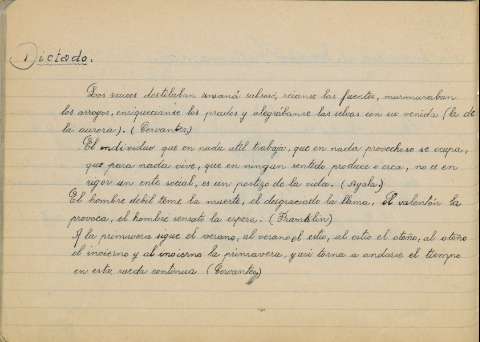 Dictado.
Los sauces destilaban maná sabroso, reíanse las fuentes, murmuraban
los arroyos, enriquecíanse los prados y alegrábanse las selvas con su venida (la de
la aurora). (Cervantes)
El individuo que en nada util trabaja, que en nada provechoso se ocupa,
que para nada vive, que en ningun sentido produce o crea, no es en
rigor un ente social, es un postizo de la vida. (Ayala)
El hombre debil teme la muerte, el desgraciado la llama, el valentón la
provoca, el hombre sensato la espera. (Franklin)
A la primavera sigue el verano, al verano el estio, al estio el otoño, al otoño
el invierno y al invierno la primavera, y asi torna a andarse el tiempo
en esta rueda continua (Cervantes)